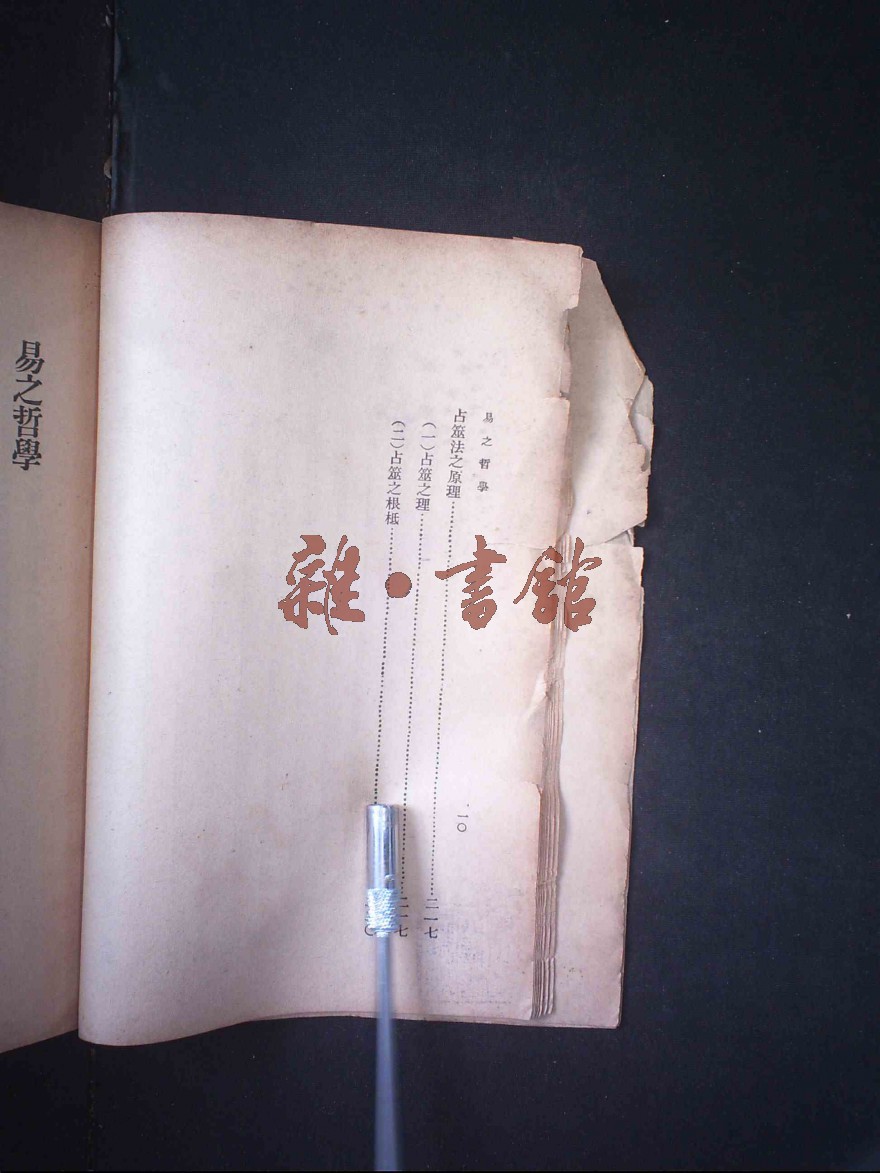 易之哲學
一〇
占筮法之原理……二一七
(一)占筮之理……二一七
(二)占筮之根柢……〇
易之哲學
雜·書館